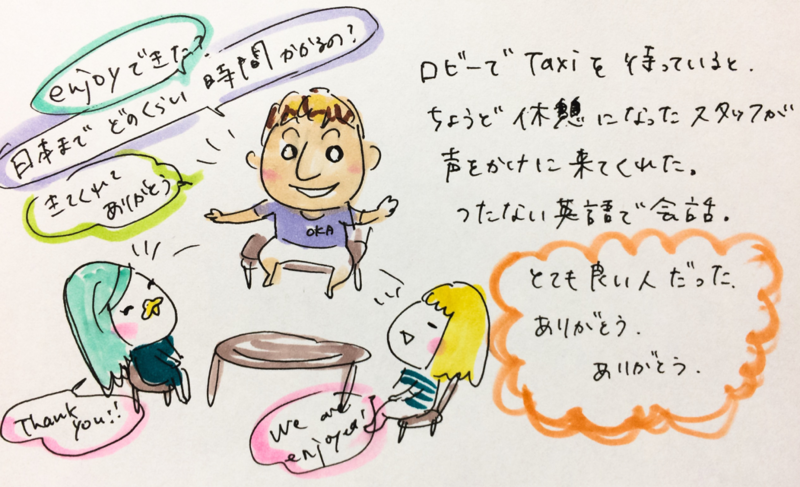 enjoyできた?
日本まで どのくらい 時間 かかるの?
来てくれて
ありがとう
OKA
Thank
you!!
We are
enjoyed!
ロビーで Taxiを 待っていると、
ちょうど 休憩になった スタッフが
声をかけに 来てくれた。
つたない 英語で 会話。
とても 良い人だった.
ありがとう.
ありがとう.